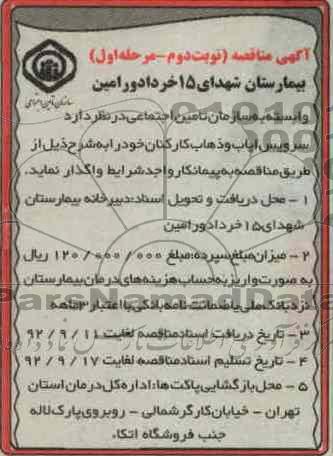 آگهی مناقصه (نوبت دوم - مرحله اول)
بیمارستان شهدای ۱۵ خرداد ورامین
سازمان تأمین اجتماعی
وابسته به سازمان تامین اجتماعی در نظر دارد
سرویس ایاب و ذهاب کارکنان خود را به شرح ذیل از
طریق مناقصه به پیمانکار واجد شرایط واگذار نماید.
۱ - محل دریافت و تحویل اسناد: دبیرخانه بیمارستان
شهدای ۱۵ خرداد ورامین
۲ - میزان مبلغ سپرده: مبلغ ۱۲۰/۰۰۰/۰۰۰ ریال
به صورت واریز به حساب هزینه های درمان بیمارستان
نزد بانک ملی یا ضمانت نامه بانکی با اعتبار ۳ ماهه
۳ - تاریخ دریافت اسناد مناقصه لغایت ۹۲/۹/۱۱
۴ - تاریخ تسلیم اسناد مناقصه لغایت ۹۲/۹/۱۷
۵ - محل بازگشایی پاکت ها: اداره کل درمان استان
تهران - خیابان کارگر شمالی - روبروی پارک لاله
جنب فروشگاه اتکا.